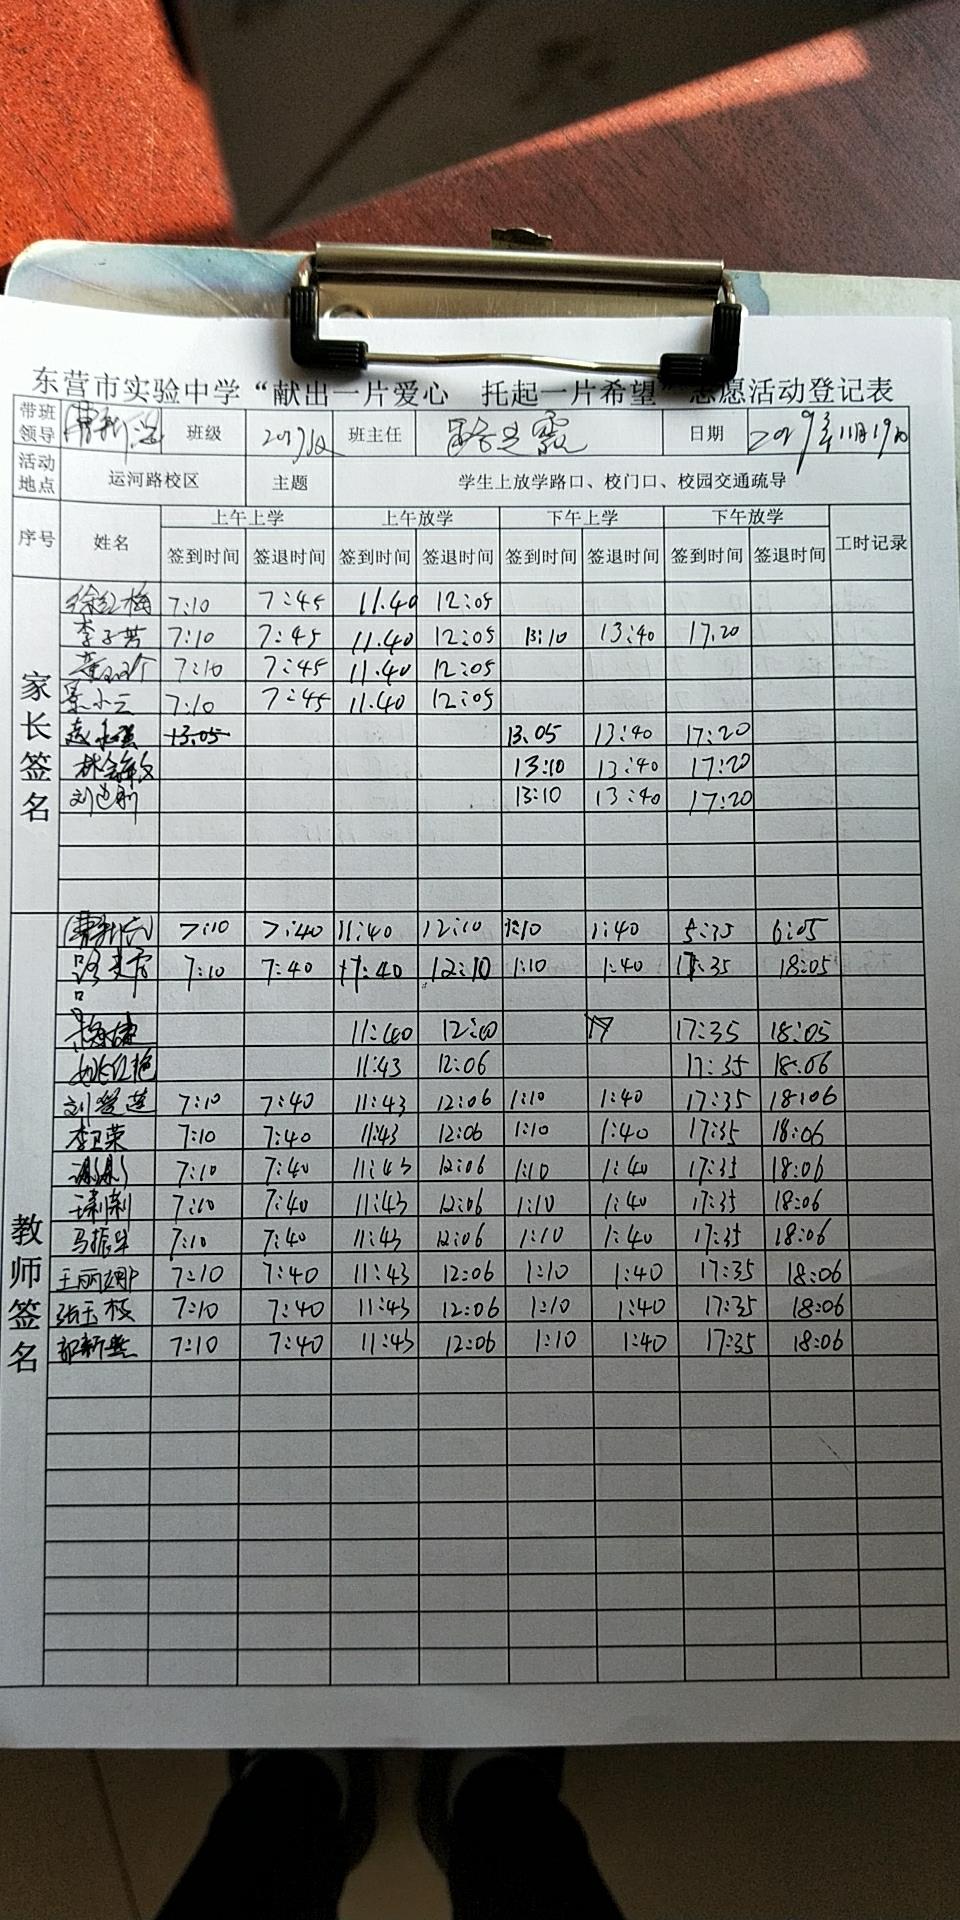 东营市实验中学“献出一片爱心 托起一片希望”志愿活动登记表
带班领导 班级 班主任 日期 2019年11月19日
活动地点 运河路校区 主题 学生上放学路口、校门口、校园交通疏导
序号 姓名 上午上学 上午放学 下午上学 下午放学 工时记录
签到时间 签退时间 签到时间 签退时间 签到时间 签退时间 签到时间 签退时间
家长签名
徐红梅 7:10 7:45 11.40 12:05
李子芳 7:10 7:45 11.40 12:05 13:10 13:40 17.20
7:10 7:45 11.40 12:05
景小云 7:10 7:45 11.40 12:05
13.05 13.05 13:40 17:20
13:10 13:40 17:20
13:10 13:40 17:20
教师签名
7:10 7:40 11:40 12:10 1:10 1:40 5:35 6:05
7:10 7:40 11:40 12:10 1:10 1:40 17:35 18:05
11:40 12:10 17:35 18:05
姚红艳 11:43 12:06 17:35 18:06
刘爱莲 7:10 7:40 11:43 12:06 1:10 1:40 17:35 18:06
李卫荣 7:10 7:40 11:43 12:06 1:10 1:40 17:35 18:06
7:10 7:40 11:43 12:06 1:10 1:40 17:35 18:06
7:10 7:40 11:43 12:06 1:10 1:40 17:35 18:06
马振华 7:10 7:40 11:43 12:06 1:10 1:40 17:35 18:06
王丽娜 7:10 7:40 11:43 12:06 1:10 1:40 17:35 18:06
张玉枝 7:10 7:40 11:43 12:06 1:10 1:40 17:35 18:06
7:10 7:40 11:43 12:06 1:10 1:40 17:35 18:06